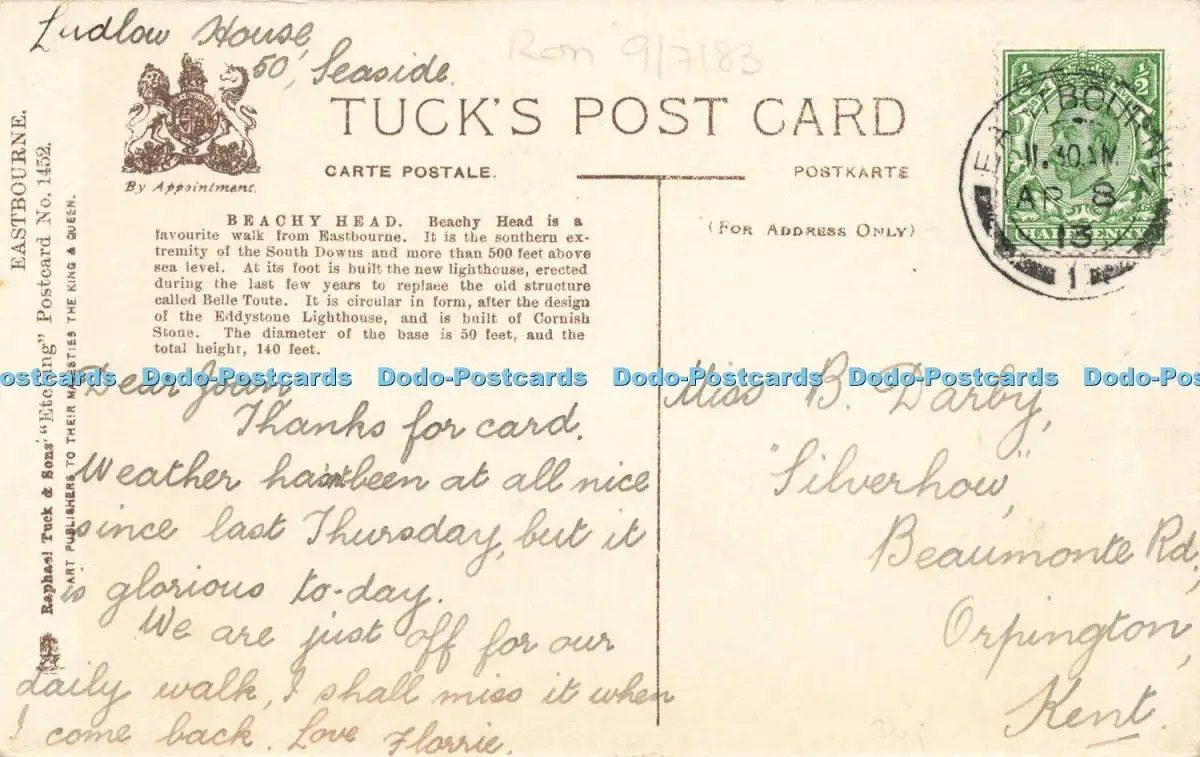 Ludlow House,
50, Seaside.
Ron 9/7/83
TUCK'S POST CARD
By Appointment.
CARTE POSTALE.
POSTKARTE
(FOR ADDRESS ONLY)
BEACHY HEAD. Beachy Head is a
favourite walk from Eastbourne. It is the southern ex-
tremity of the South Downs and more than 500 feet above
sea level. At its foot is built the new lighthouse, erected
during the last few years to replace the old structure
called Belle Toute. It is circular in form, after the design
of the Eddystone Lighthouse, and is built of Cornish
Stone. The diameter of the base is 50 feet, and the
total height, 140 feet.
EASTBOURNE.
Raphael Tuck & Sons' "Etching" Postcard No. 1452.
ART PUBLISHERS TO THEIR MAJESTIES THE KING & QUEEN.
½ ½
HALFPENNY
EASTBOURNE
11.30AM
AP 8
13
1
Dear Joan
Thanks for card.
Weather hasn't been at all nice
since last Thursday, but it
is glorious to-day.
We are just off for our
daily walk, I shall miss it when
I come back. Love Florrie.
Miss B. Darby,
"Silverhow,"
Beaumonte Rd,
Orpington,
Kent.
ostcards Dodo-Postcards Dodo-Postcards Dodo-Postcards Dodo-Postcards Dodo-Pos